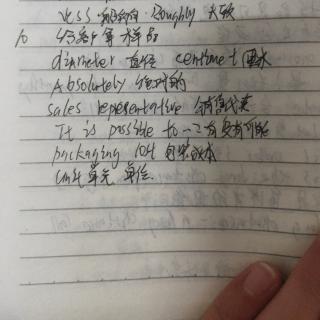 Roughly 大致
10
diameter 直径 centimet 厘米
Absolutely 绝对的
sales representative 销售代表
It is possible to ... 有没有可能
packaging cost 包装成本
unit 单元 单位.